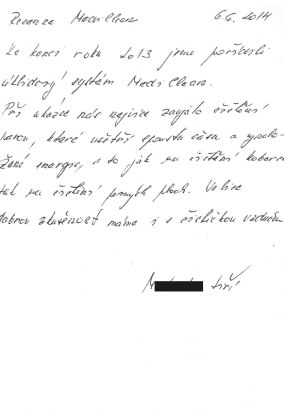 Recenze MediClean 6.6. 2014
Ke konci roku 2013 jsme pořídili
úklidový systém MediClean.
Při ukázce nás nejvíce zaujalo čištění
parou, které ušetří spoustu času a vynalo-
žené energie, a to jak na čištění koberců
tak na čištění pevných ploch. Velice
dobrou zkušenost máme i s čističkou vzduchu
Jiří